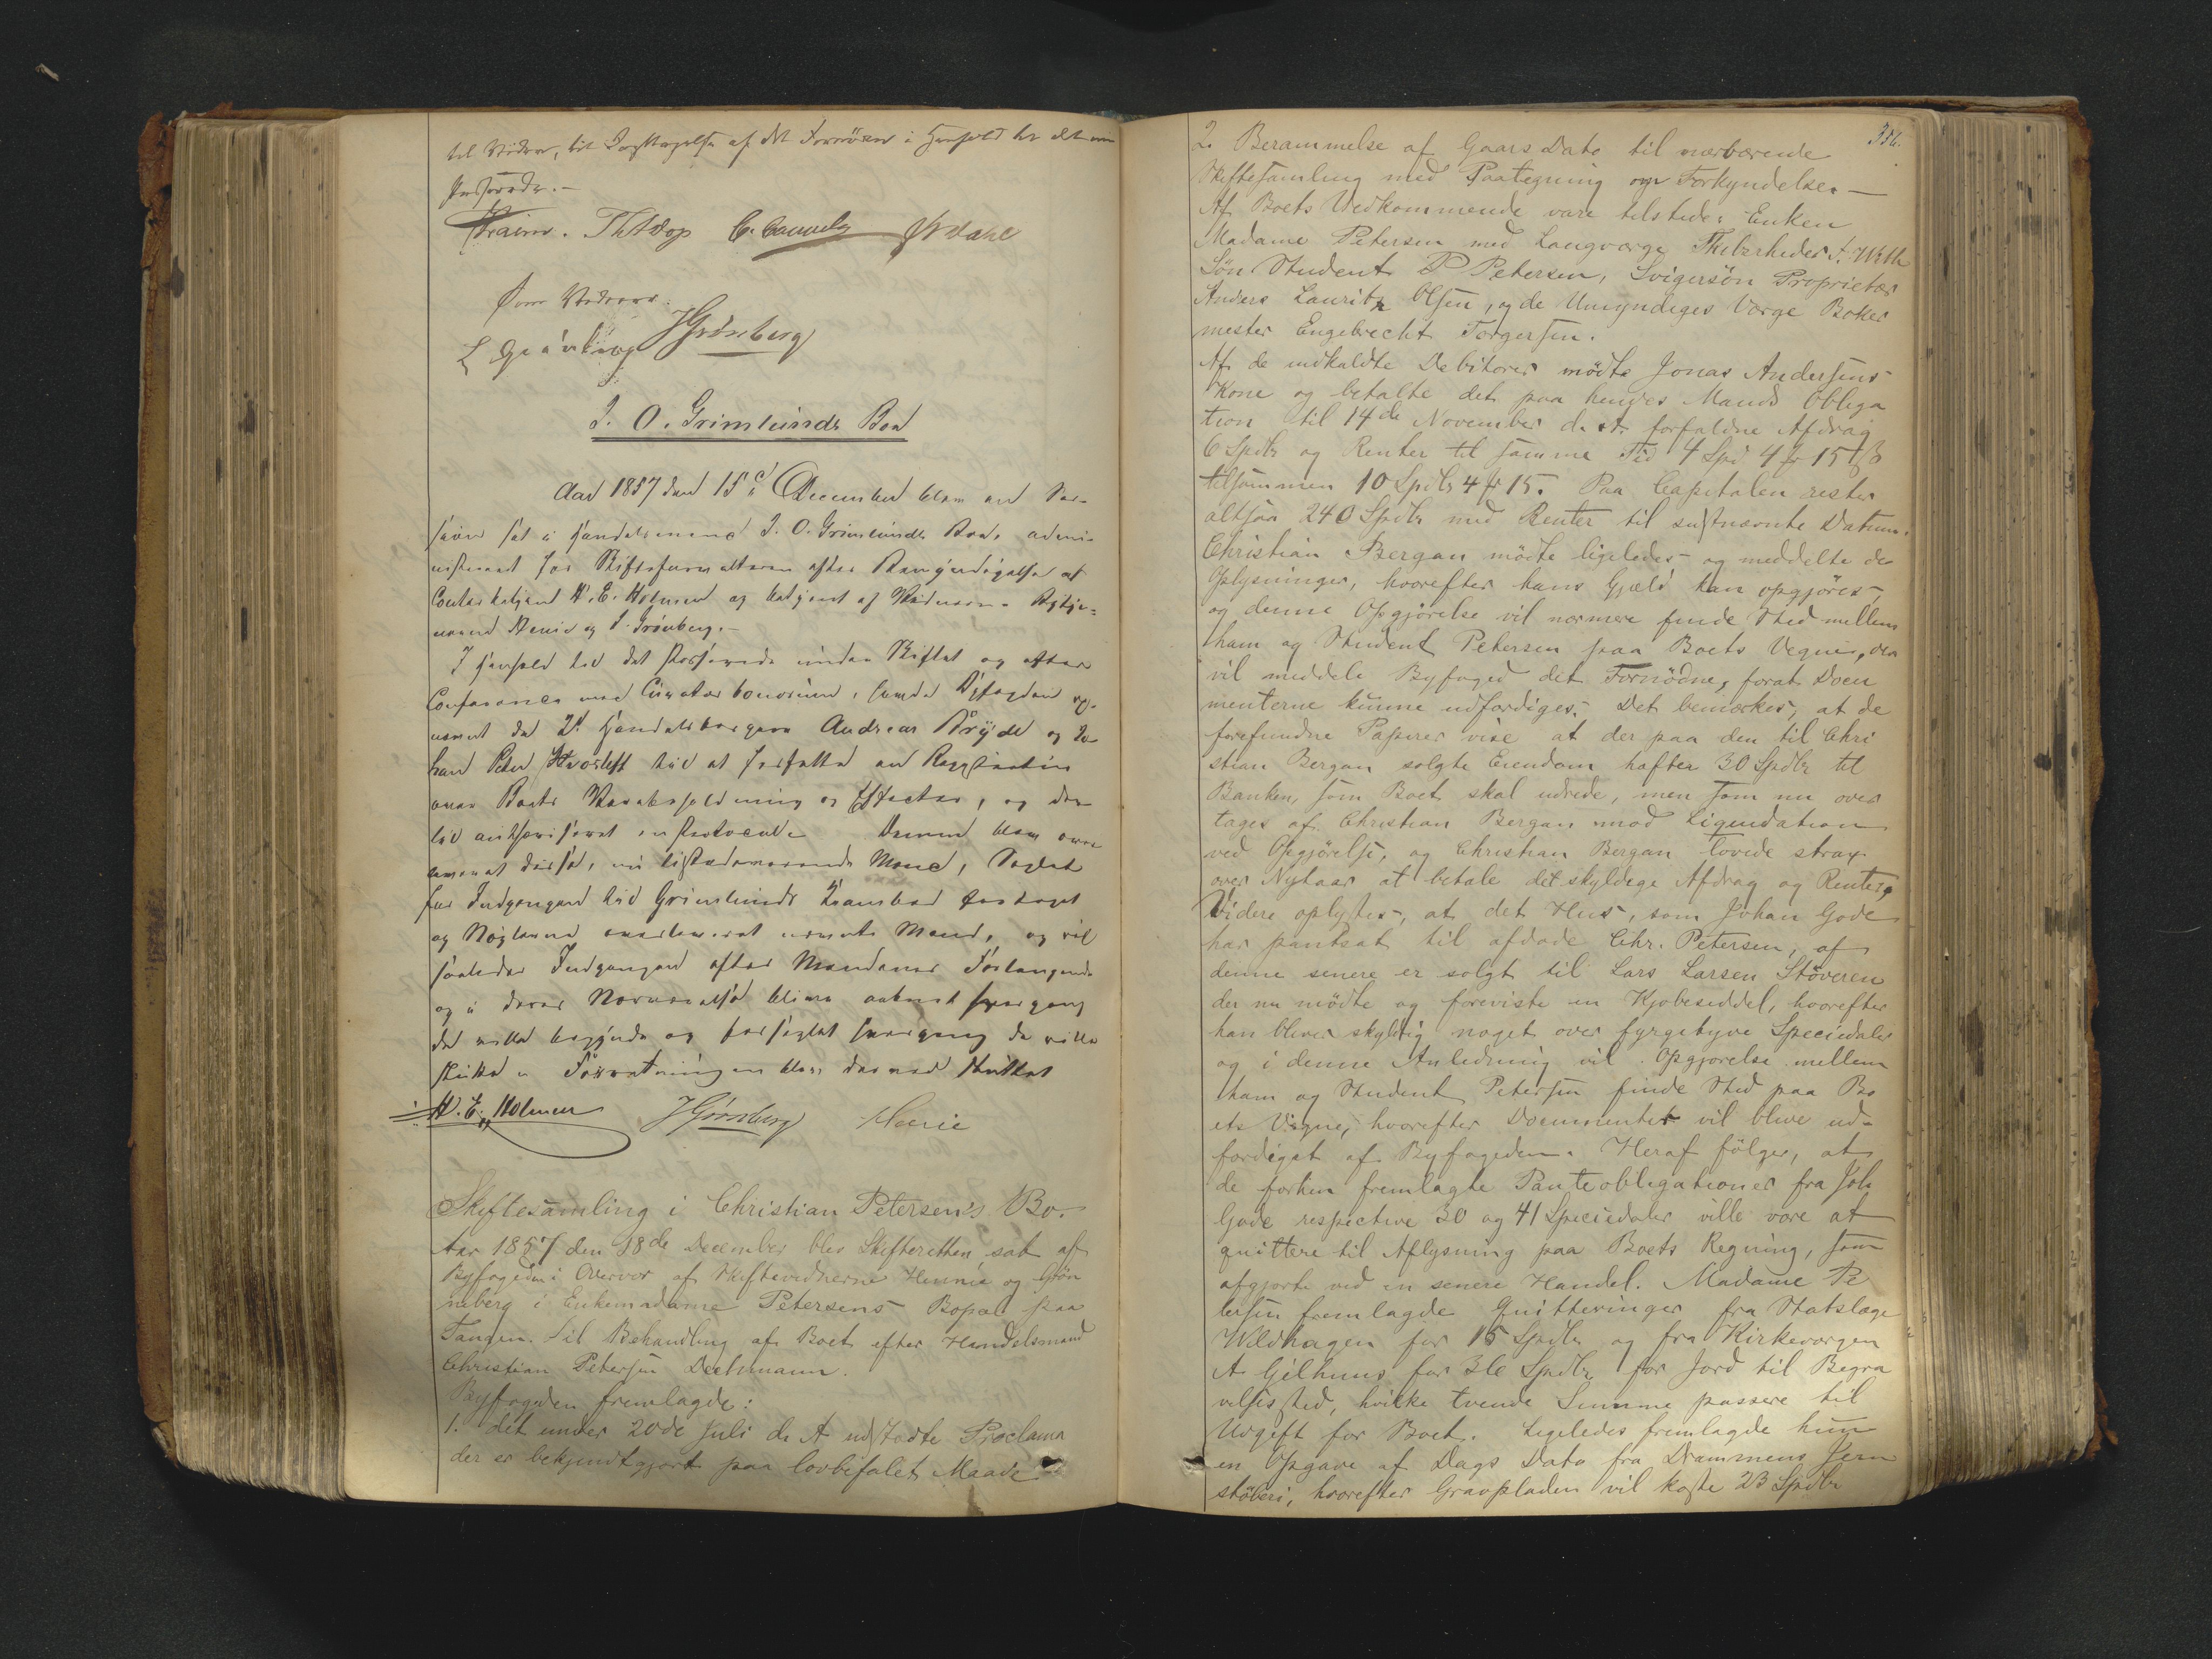 til Videre, til Iagttagelse af det Fornødne i Henhold til det
passerede.-
Th C. Dahl
Som Vidner:
JGrönberg
I. O. Grimlunds Bo
Aar 1857 den 15de December blev en For-
i Handelsmand I. O. Grimlunds Bo, admi-
nistreret for Skifteforvalteren efter Bemyndigelse af
Contorbetjent H. E. Holmen og betjent af Vidnerne
og I. Grönberg.-
I Henhold til det Passerede under Skiftet og efter
Conference med Curator bonorum, havde Byfogden op-
nævnt de 2de Handelsborgere Andreas Bryde og Jo-
han Peter til at forfatte en Registrering
over Boets Varebeholdning og Effecter, og der-
til protocol. Derved blev over-
leveret disse, nu tilstedeværende Mænd, Seglet
for Indgangen til Grimlunds Krambod
og Nøglerne overleveret nævnte Mænd, og vil
saaledes Indgangen efter Mændenes Forlangende
og i deres Nærværelse blive aabnet hver gang
de ville begynde og forseglet hver gang de ville
slutte. Forretningen blev dermed sluttet
H. E. Holmen JGrönberg
Skiftesamling i Christian Petersen's Bo.
Aar 1857 den 18de December blev Skifteretten sat af
Byfogden i Overvær af Skiftevidnerne Hennie og Grön
neberg i Enkemadame Petersens Bopæl paa
Tangen til Behandling af Boet efter Handelsmand
Christian Petersen Deelmann.
Byfogden fremlagde:
1. det under 20de Juli d. A. udstædte Proclama
der er bekjendtgjort paa lovbefalet Maade
356.
2. Berammelse af Gaars Dato til nærværende
Skiftesamling med Paategning om Forkyndelse.-
Af Boets Vedkommende vare tilstede: Enken
Madame Petersen med Laugværge
Sön Student P Petersen, Svigersön Proprietær
Anders Lauritz Olsen, og de Umyndiges Værge Bager
mester Engebrecht Torgersen.
Af de indkaldte Debitorer mödte Jonas Andersens
Kone og betalte det paa hendes Mands Obliga
tion til 14de November d. A. forfaldne Afdrag
6 Spdlr og Renter til samme Tid 4 Spd 4 # 15 ß
tilsammen 10 Spdlr 4 # 15. Paa Capitalen rester
altsaa 240 Spdlr med Renter til sidstnævnte Datum.
Christian Bergan mödte ligeledes og meddelte de
Oplysninger, hvorefter hans Gjæld kan opgjöres,
og denne Opgjörelse vil nærmere finde Sted mellem
ham og Student Petersen paa Boets Vegne, der
vil meddele Byfoged det Fornödne, forat Docu
menterne kunne udfærdiges. Det bemærkes, at de
forefundne Papirer vise at der paa den til Chri
stian Bergan solgte Eiendom hæfter 30 Spdlr til
Banken, som Boet skal udrede, men som nu over
tages af Christian Bergan mod Liqvidation
ved Opgjörelse, og Christian Bergan lovede strax
over Nytaar at betale det skyldige Afdrag og Renter.
Videre oplystes, at det Hus, som Johan Gode
har pantsat til afdøde Chr. Petersen, af
denne senere er solgt til Lars Larsen Stöveren
der nu mödte og foreviste en Kjøbeseddel, hvorefter
han bliver skyldig noget over fyrgetyve Speciedaler
og i denne Anledning vil Opgjørelse mellem
ham og Student Petersen finde Sted paa Bo
ets Vegne, hvorefter Documentet vil blive ud-
færdiget af Byfogden. Heraf fölger, at
de forhen fremlagte Panteobligationer fra Joh
Gode respective 30 og 41 Speciedaler ville være at
qvittere til Aflysning paa Boets Regning, som
afgjorte ved en senere Handel. Madame Pe
tersen fremlagde Qvitteringer fra Statslæge
Wildhagen for 15 Spdlr og fra Kirkeværgen
A Gilhuus for 36 Spdlr for Jord til Begra
velsissted, hvilke tvende Summe passere til
Udgift for Boet. Ligeledes fremlagde hun
en Opgave af Dags Dato fra Drammens Jern
støberi, hvorefter Gravpladen vil koste 23 Spdlr